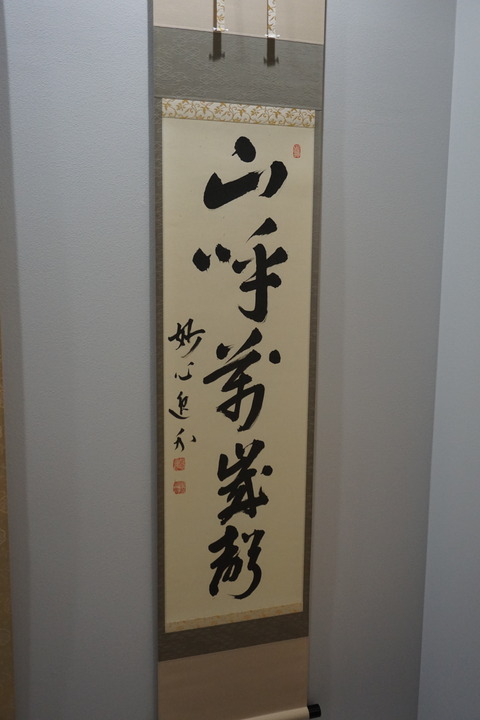 山呼萬歳聲
妙心